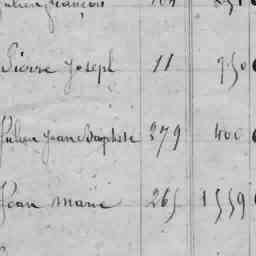 Julien François
Pierre Joseph 11 950
Julien Jean Baptiste 279 400
Jean Marie 265 1559